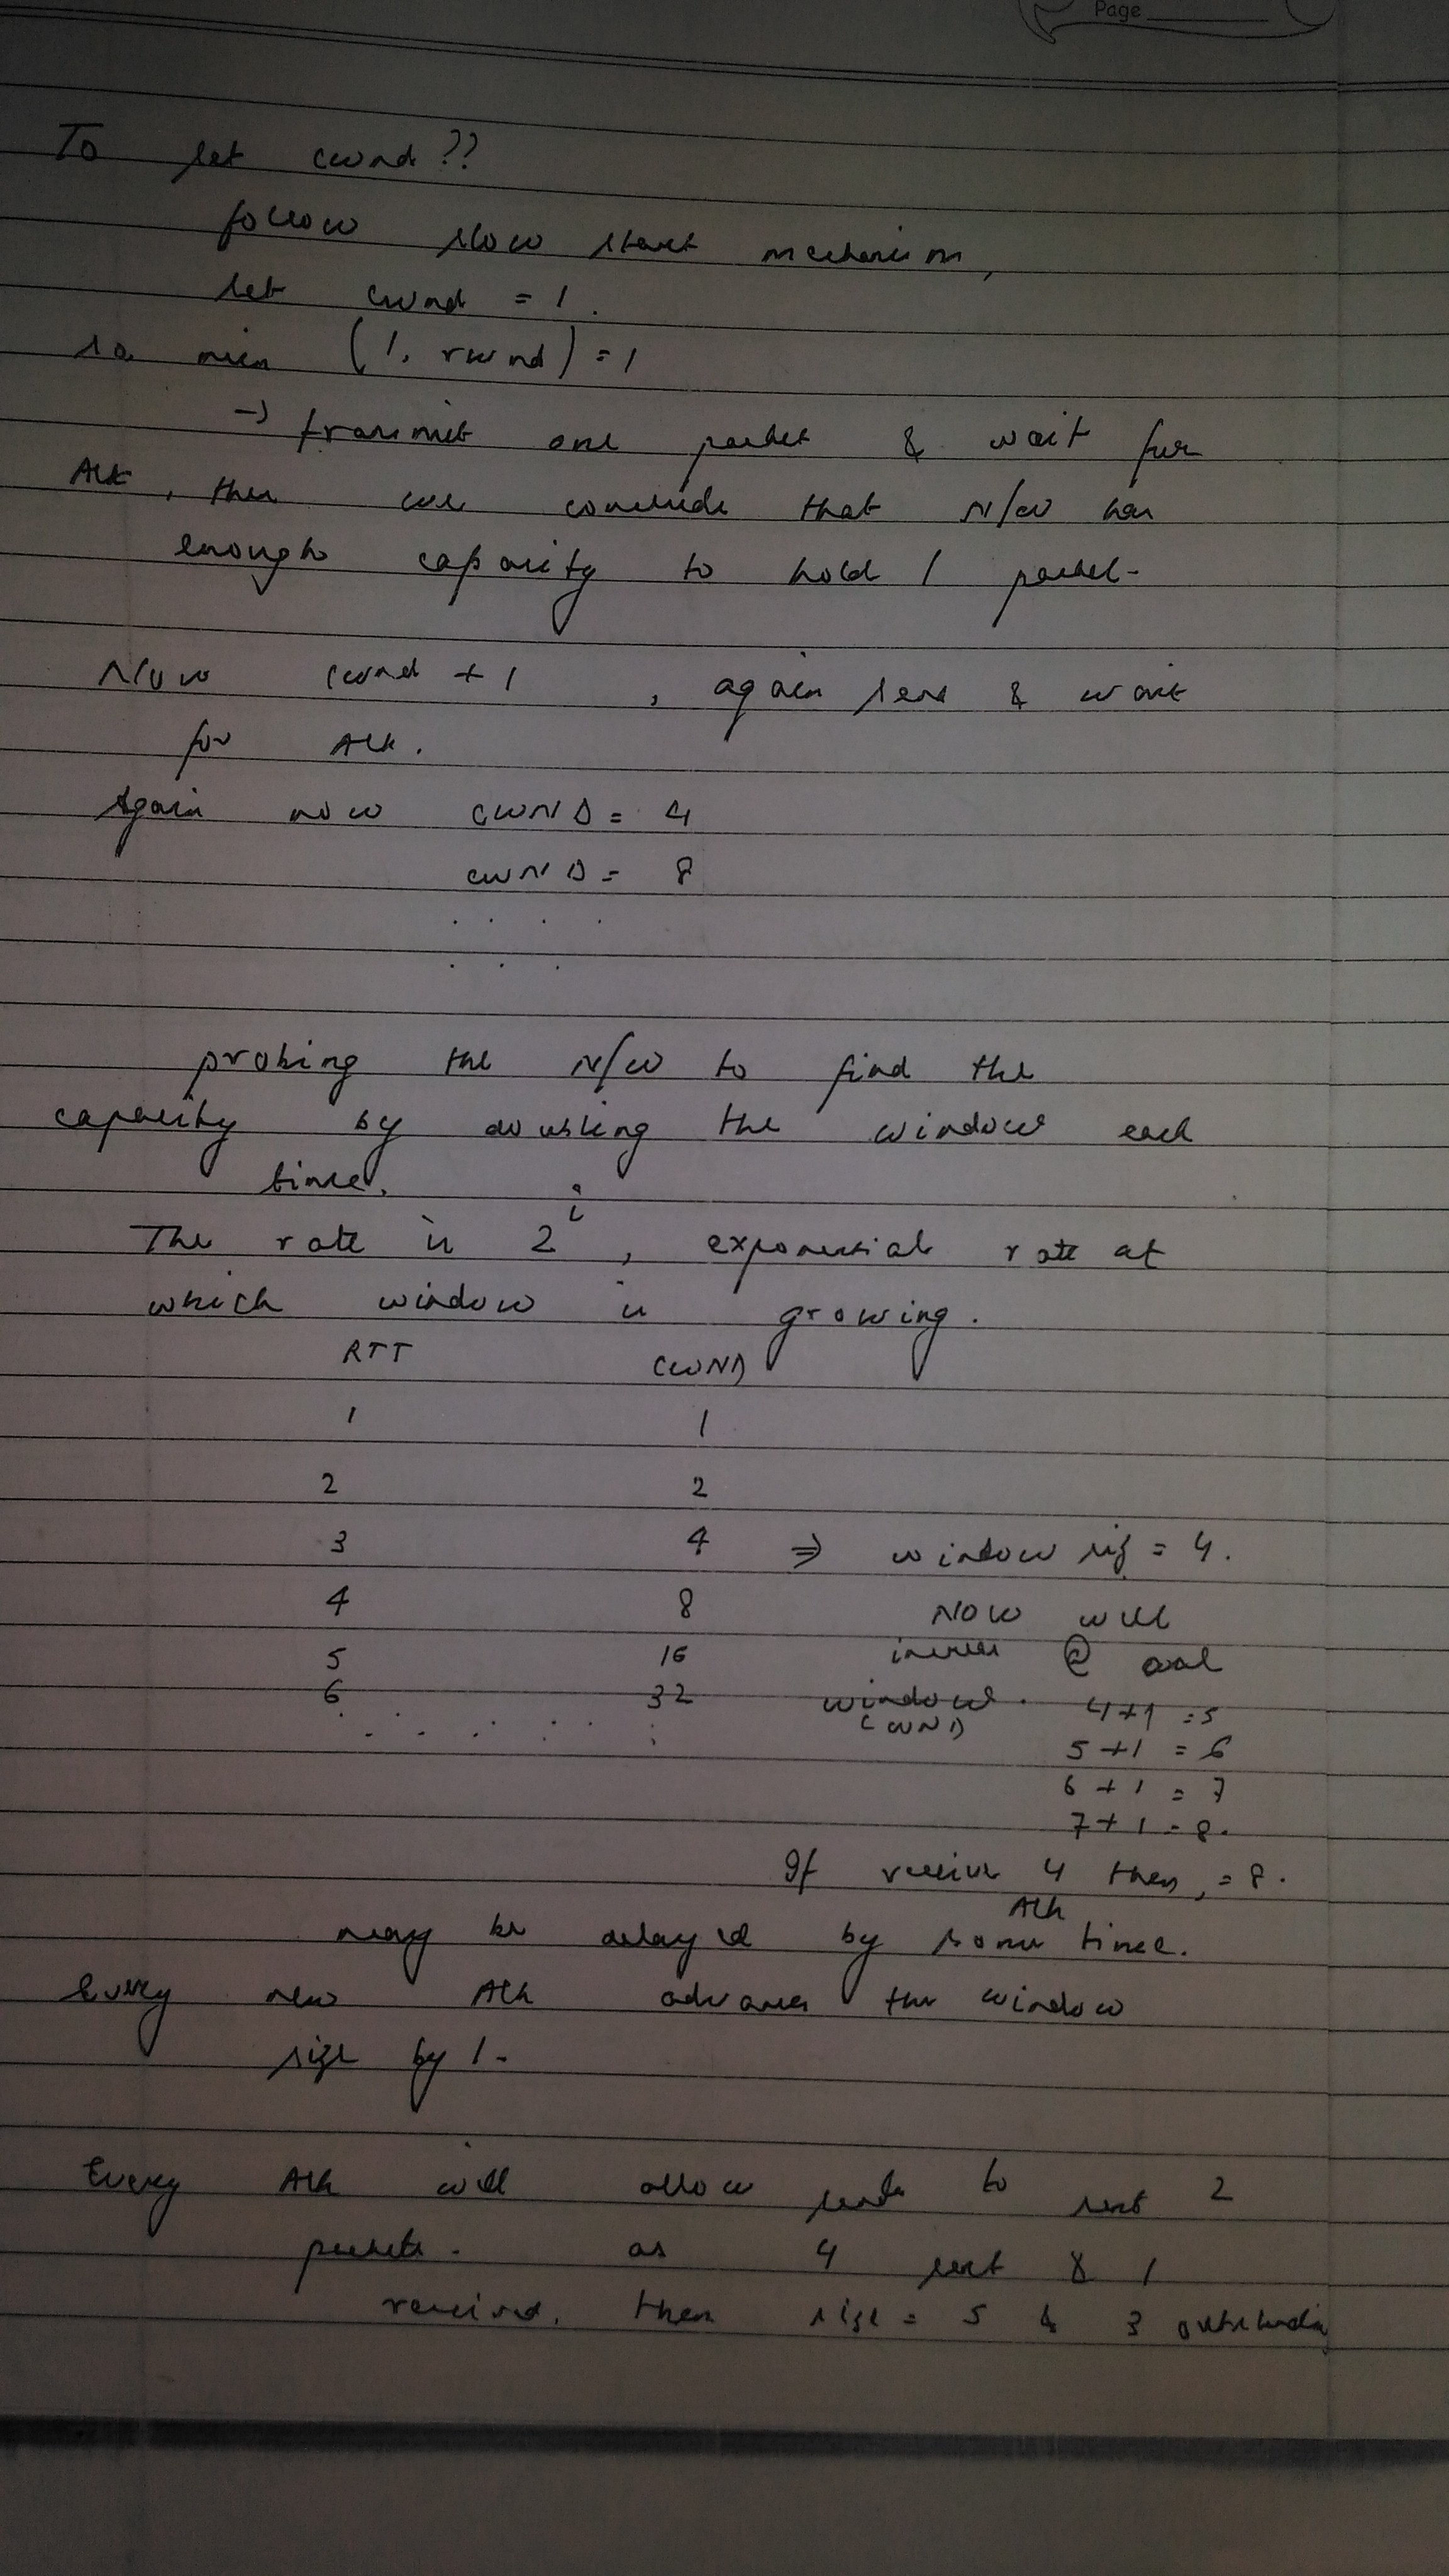 Page
To set cwnd ??
follow slow start mechanism,
set cwnd = 1.
so min (1, rwnd) = 1
→ transmit one packet & wait for
Ack, then we conclude that N/W has
enough capacity to hold 1 packet.
Now cwnd + 1 , again send & wait
for Ack.
Again now CWND = 4
CWND = 8
. . . .
. . .
probing the N/W to find the
capacity by doubling the window each
time.
The rate is 2^i, exponential rate at
which window is growing.
RTT CWND
1 1
2 2
3 4 ⇒ window size = 4.
4 8 Now will
5 16 increase @
6 32 window. 4+1 = 5
(CWND)
5 + 1 = 6
6 + 1 = 7
7 + 1 = 8.
If receive 4 Ack then, = 8.
may be delayed by some time.
Every new Ack advances the window
size by 1.
Every Ack will allow sender to send 2
packets. as 4 sent & 1
received. then size = 5 & 3 outstanding